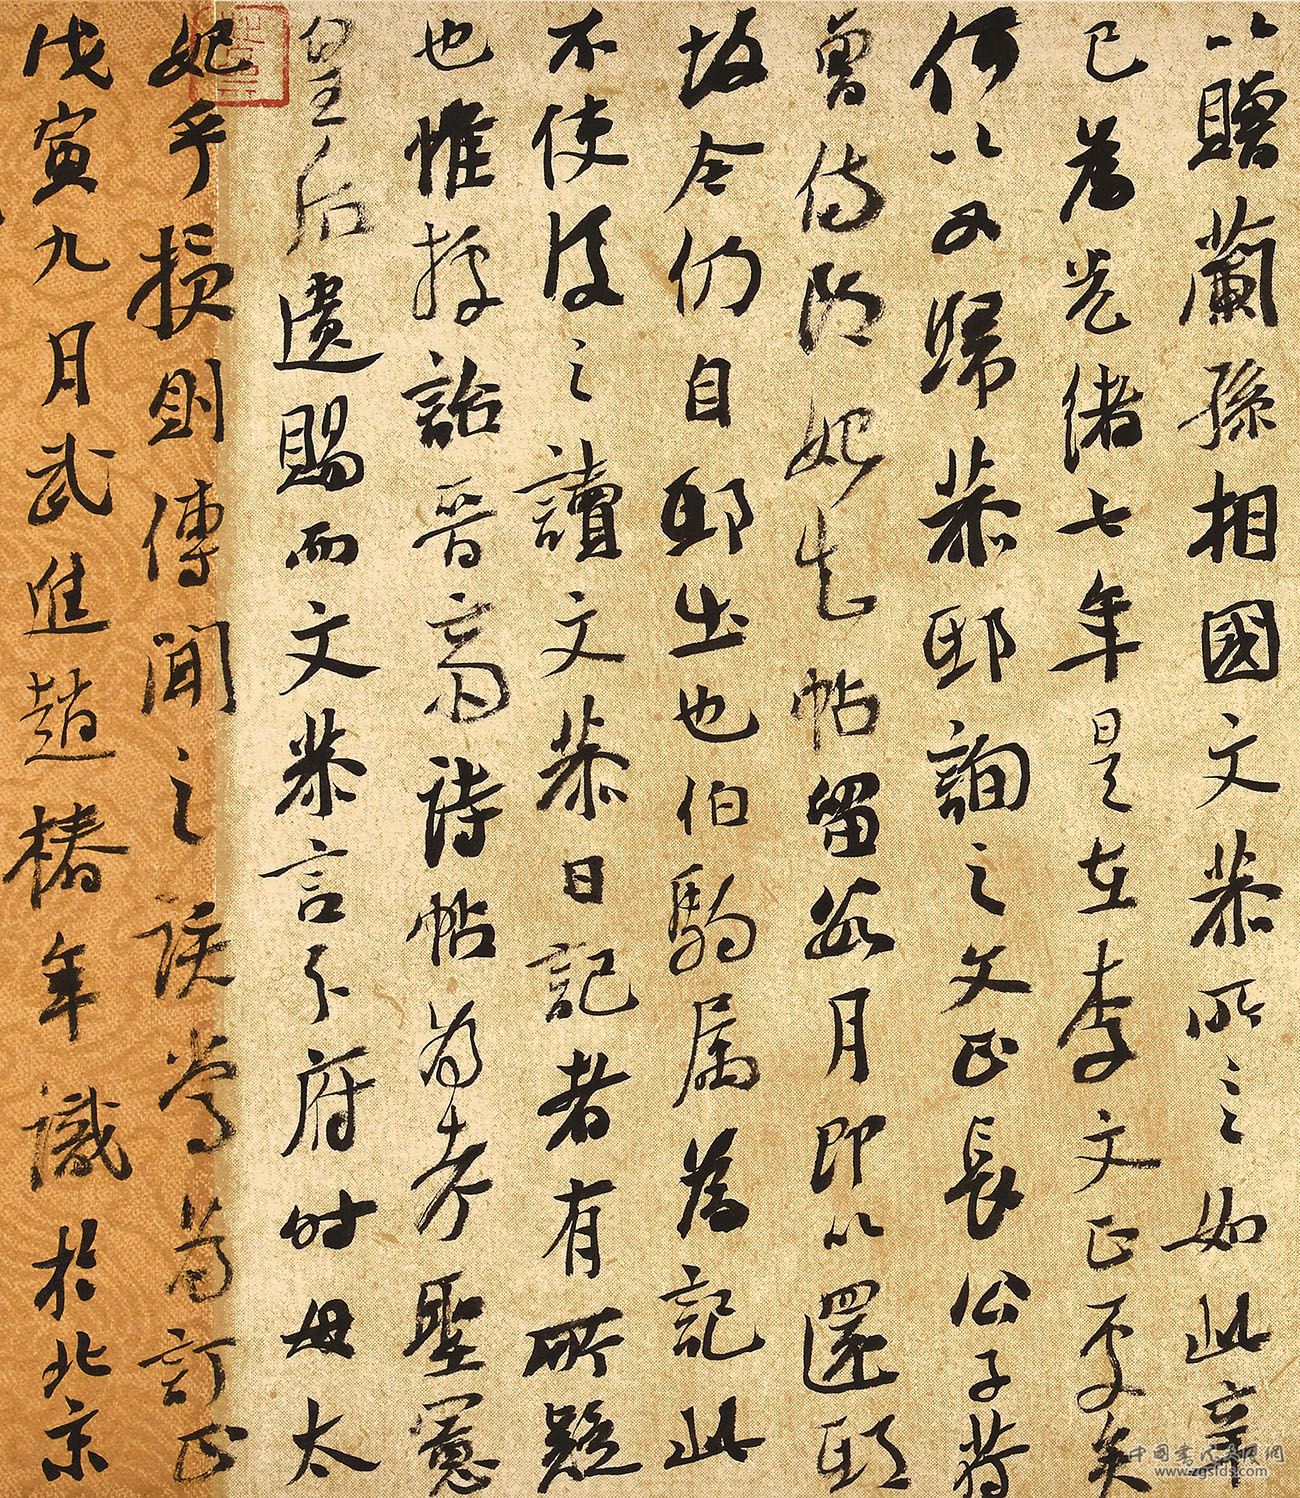 以贈蘭孫相國文恭所云如此辛
巳為光緒七年是在李文正更矣
何以又歸恭邸詢之文正長公子符
曾侍郎始知帖留數月即以還邸
故今仍自邸出也伯駒屬為記此
不使後之讀文恭日記者有所疑
也惟按詒晉齋詩帖為孝聖憲
皇后遺賜而文恭言分府時母太
妃手授則傳聞之誤當為訂正
戊寅九月武進趙椿年識於北京
www.zgsfds.com